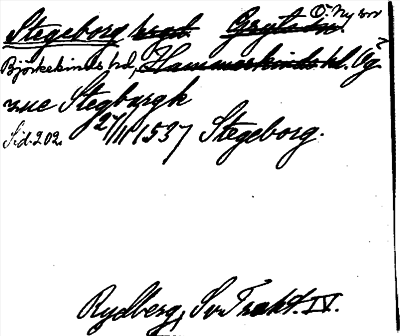 Stegeborg
Ö. Ny sn
Björkekinds hd, Hammarkinds hd. Ög
Stegburgk
Sid. 202. 12/11 1537 Stegeborg.
Rydberg, Sv. Trakt. IV.